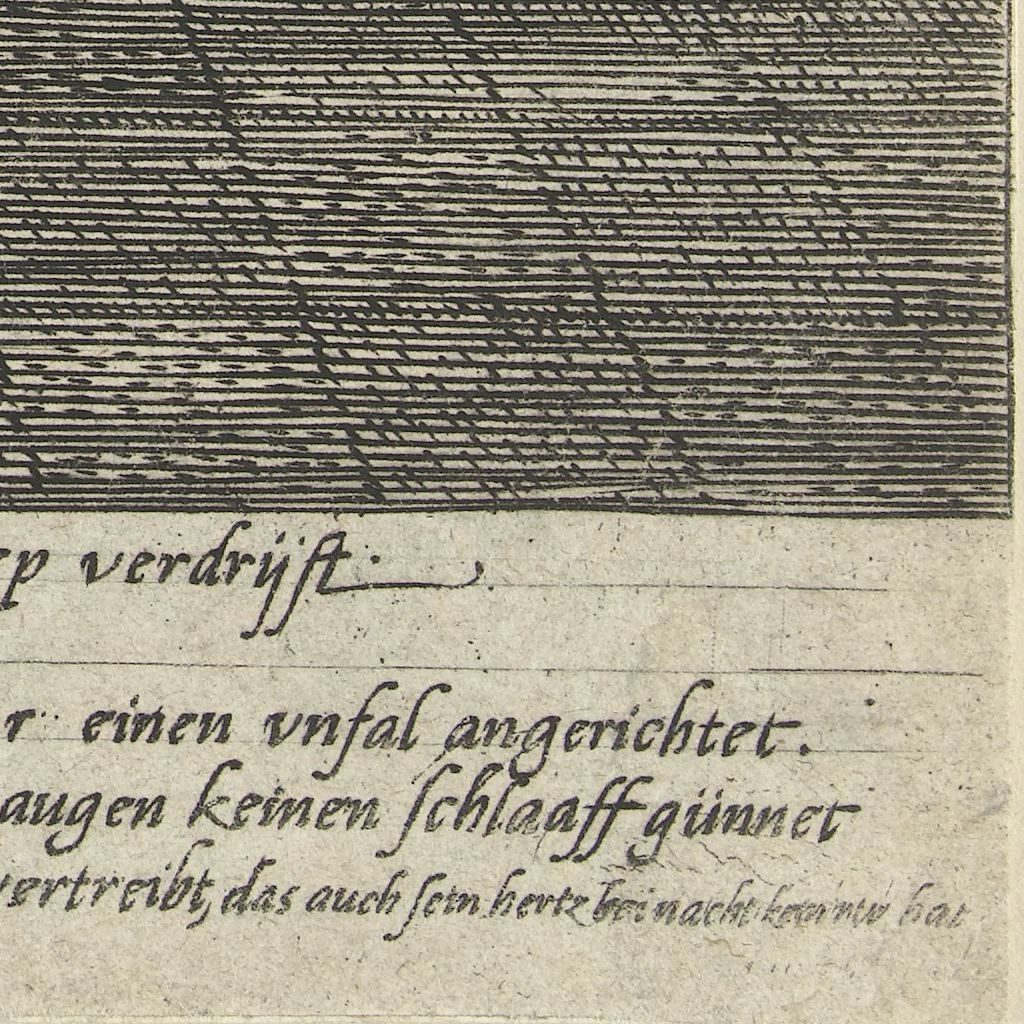 ep verdrijft.
r einen vnfal angerichtet.
augen keinen ſchlaaff günnet
vertreibt, das auch ſein hertz bei nacht kein ruv hat